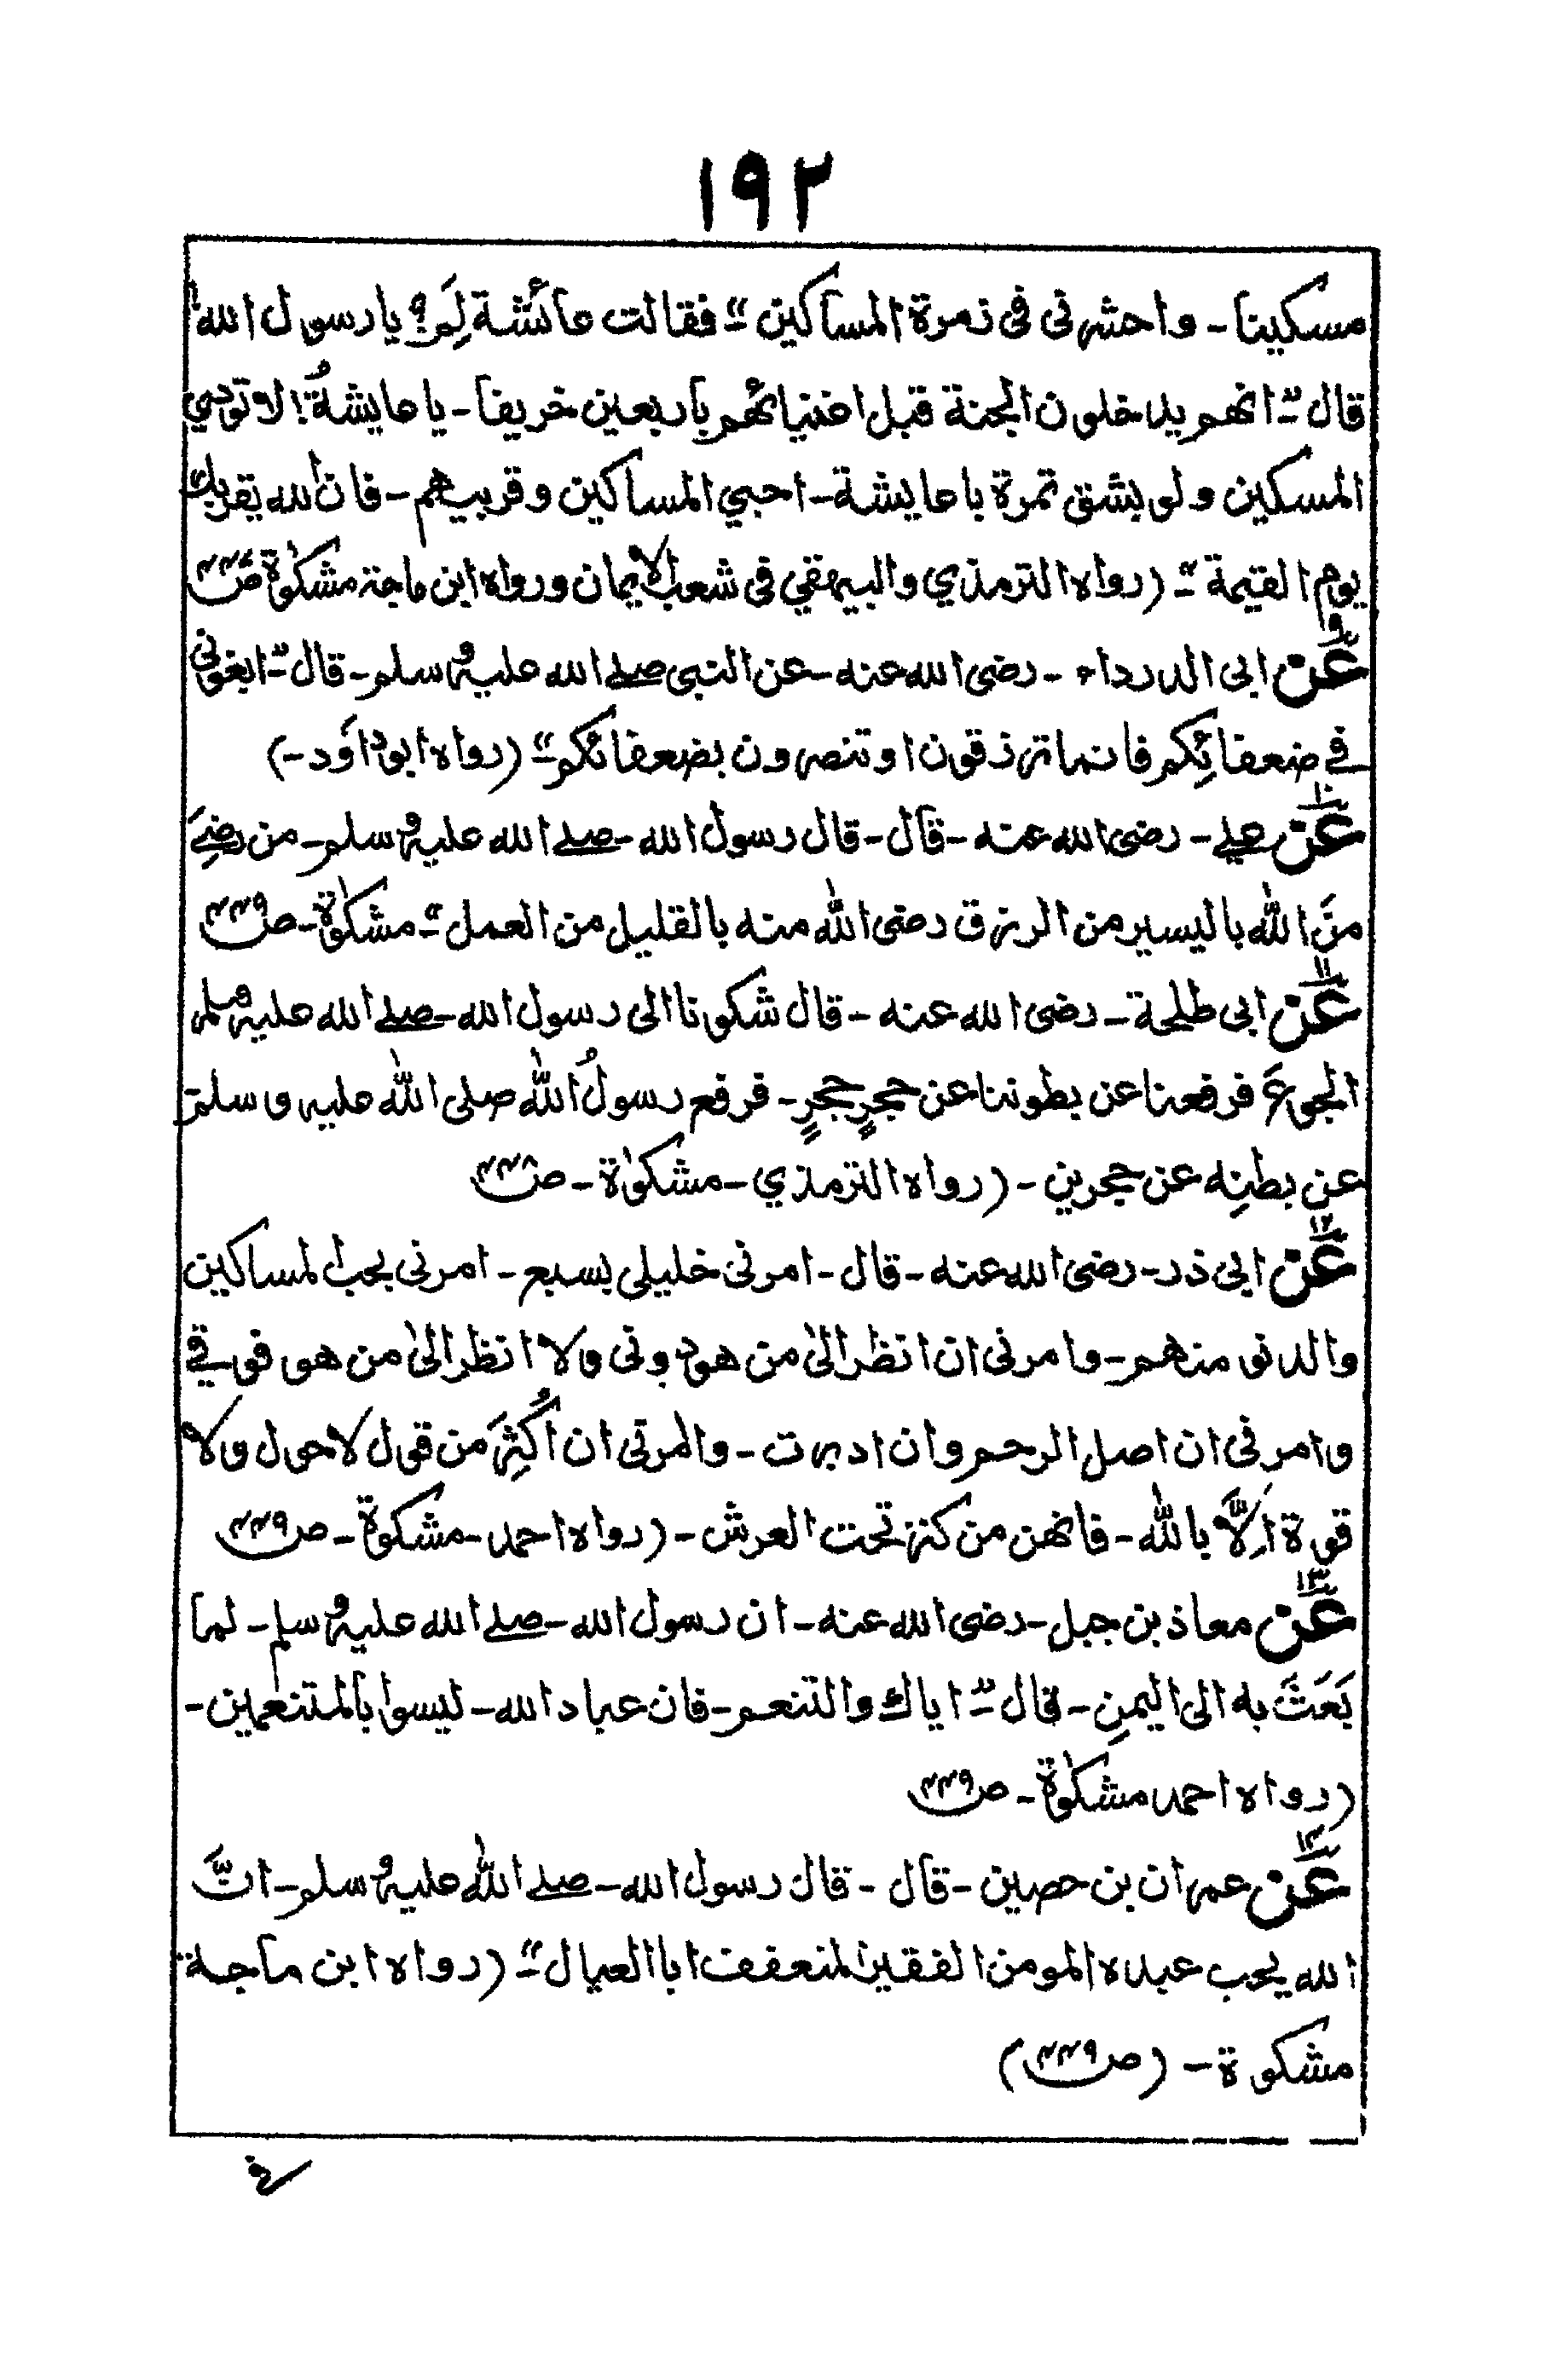 ۱۹۲
مسکینا۔ واحشرنی فی زمرة المساکین"۔ فقالت عائشة لِمَ؟ یا رسول الله
قال "۔ انهم یدخلون الجنة قبل اغنیائهم باربعین خریفا۔ یا عایشةُ! لا تودي
المسکین ولو بشق تمرة یا عایشة۔ احبي المساکین وقربیهم۔ فان الله یقربك
یوم القیمة"۔ (رواه الترمذي والبیهقي فی شعب الایمان ورواه ابن ماجة مشکوٰة ص۴۴۷
۹ عن ابی الدرداء ۔ رضی الله عنه۔ عن النبی صلے الله علیه وسلم۔ قال "۔ ابغونی
فے ضعفائِکم فانما ترزقون او تنصرون بضعفائکم"۔ (رواه ابوداؤد۔)
۱۰ عن علے۔ رضی الله عنه۔ قال۔ قال رسول الله۔ صلے الله علیه وسلم۔ من رضِیَ
منَ الله بالیسیر من الرزق رضی الله منه بالقلیل من العمل"۔ مشکوٰة۔ ص۴۴۹
۱۱ عن ابی طلحة۔ رضی الله عنه۔ قال شکونا الی رسول الله۔ صلے الله علیه وسلم
الجوعَ فرفعنا عن بطوننا عن حجرٍ حجرٍ۔ فرفع رسولُ الله صلی الله علیه وسلم
عن بطنِه عن حجرین۔ (رواه الترمذي۔ مشکوٰة۔ ص۴۴۸
۱۲ عن ابی ذر۔ رضی الله عنه۔ قال۔ امرنی خلیلی بسبع۔ امرنی بحب المساکین
والدنو منهم۔ وامرنی ان انظر الیٰ من هو دونی ولا انظر الیٰ من هو فوقي
وامرنی ان اصل الرحم وان ادبرت۔ وامرنی ان اُکثِرَ من قول لا حول ولا
قوة اِلَّا بالله۔ فانهن من کنز تحت العرش۔ (رواه احمد۔ مشکوة۔ ص۴۴۹
۱۳ عن معاذ بن جبل۔ رضی الله عنه۔ ان رسول الله۔ صلے الله علیه وسلم۔ لما
بَعَثَ به الی الیمنِ۔ قال "۔ ایاك والتنعم۔ فان عباد الله۔ لیسوا بالمتنعمین۔
(رواه احمد مشکوٰة۔ ص۴۴۹
۱۴ عن عمران بن حصین۔ قال۔ قال رسول الله۔ صلے الله علیه وسلم۔ انَّ
الله یحب عبده المومن الفقیر المتعفف ابا العیال"۔ (رواه ابن ماجة
مشکوة۔ (ص۴۴۹)